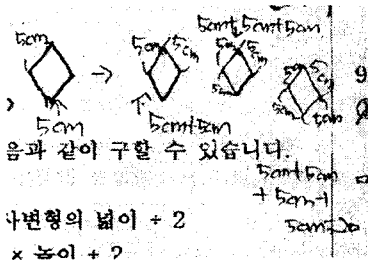 5cm+5cm+5cm
5cm 5cm 5cm 5cm 5cm
5cm 5cm 5cm
9
5cm 5cm+5cm 5cm 5cm
음과 같이 구할 수 있습니다.
5cm+5cm
+5cm+
변형의 넓이 ÷ 2
× 높이 ÷ 2